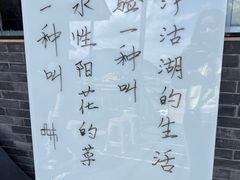 泸沽湖的生活
一种叫
水性阳花的草
一种叫